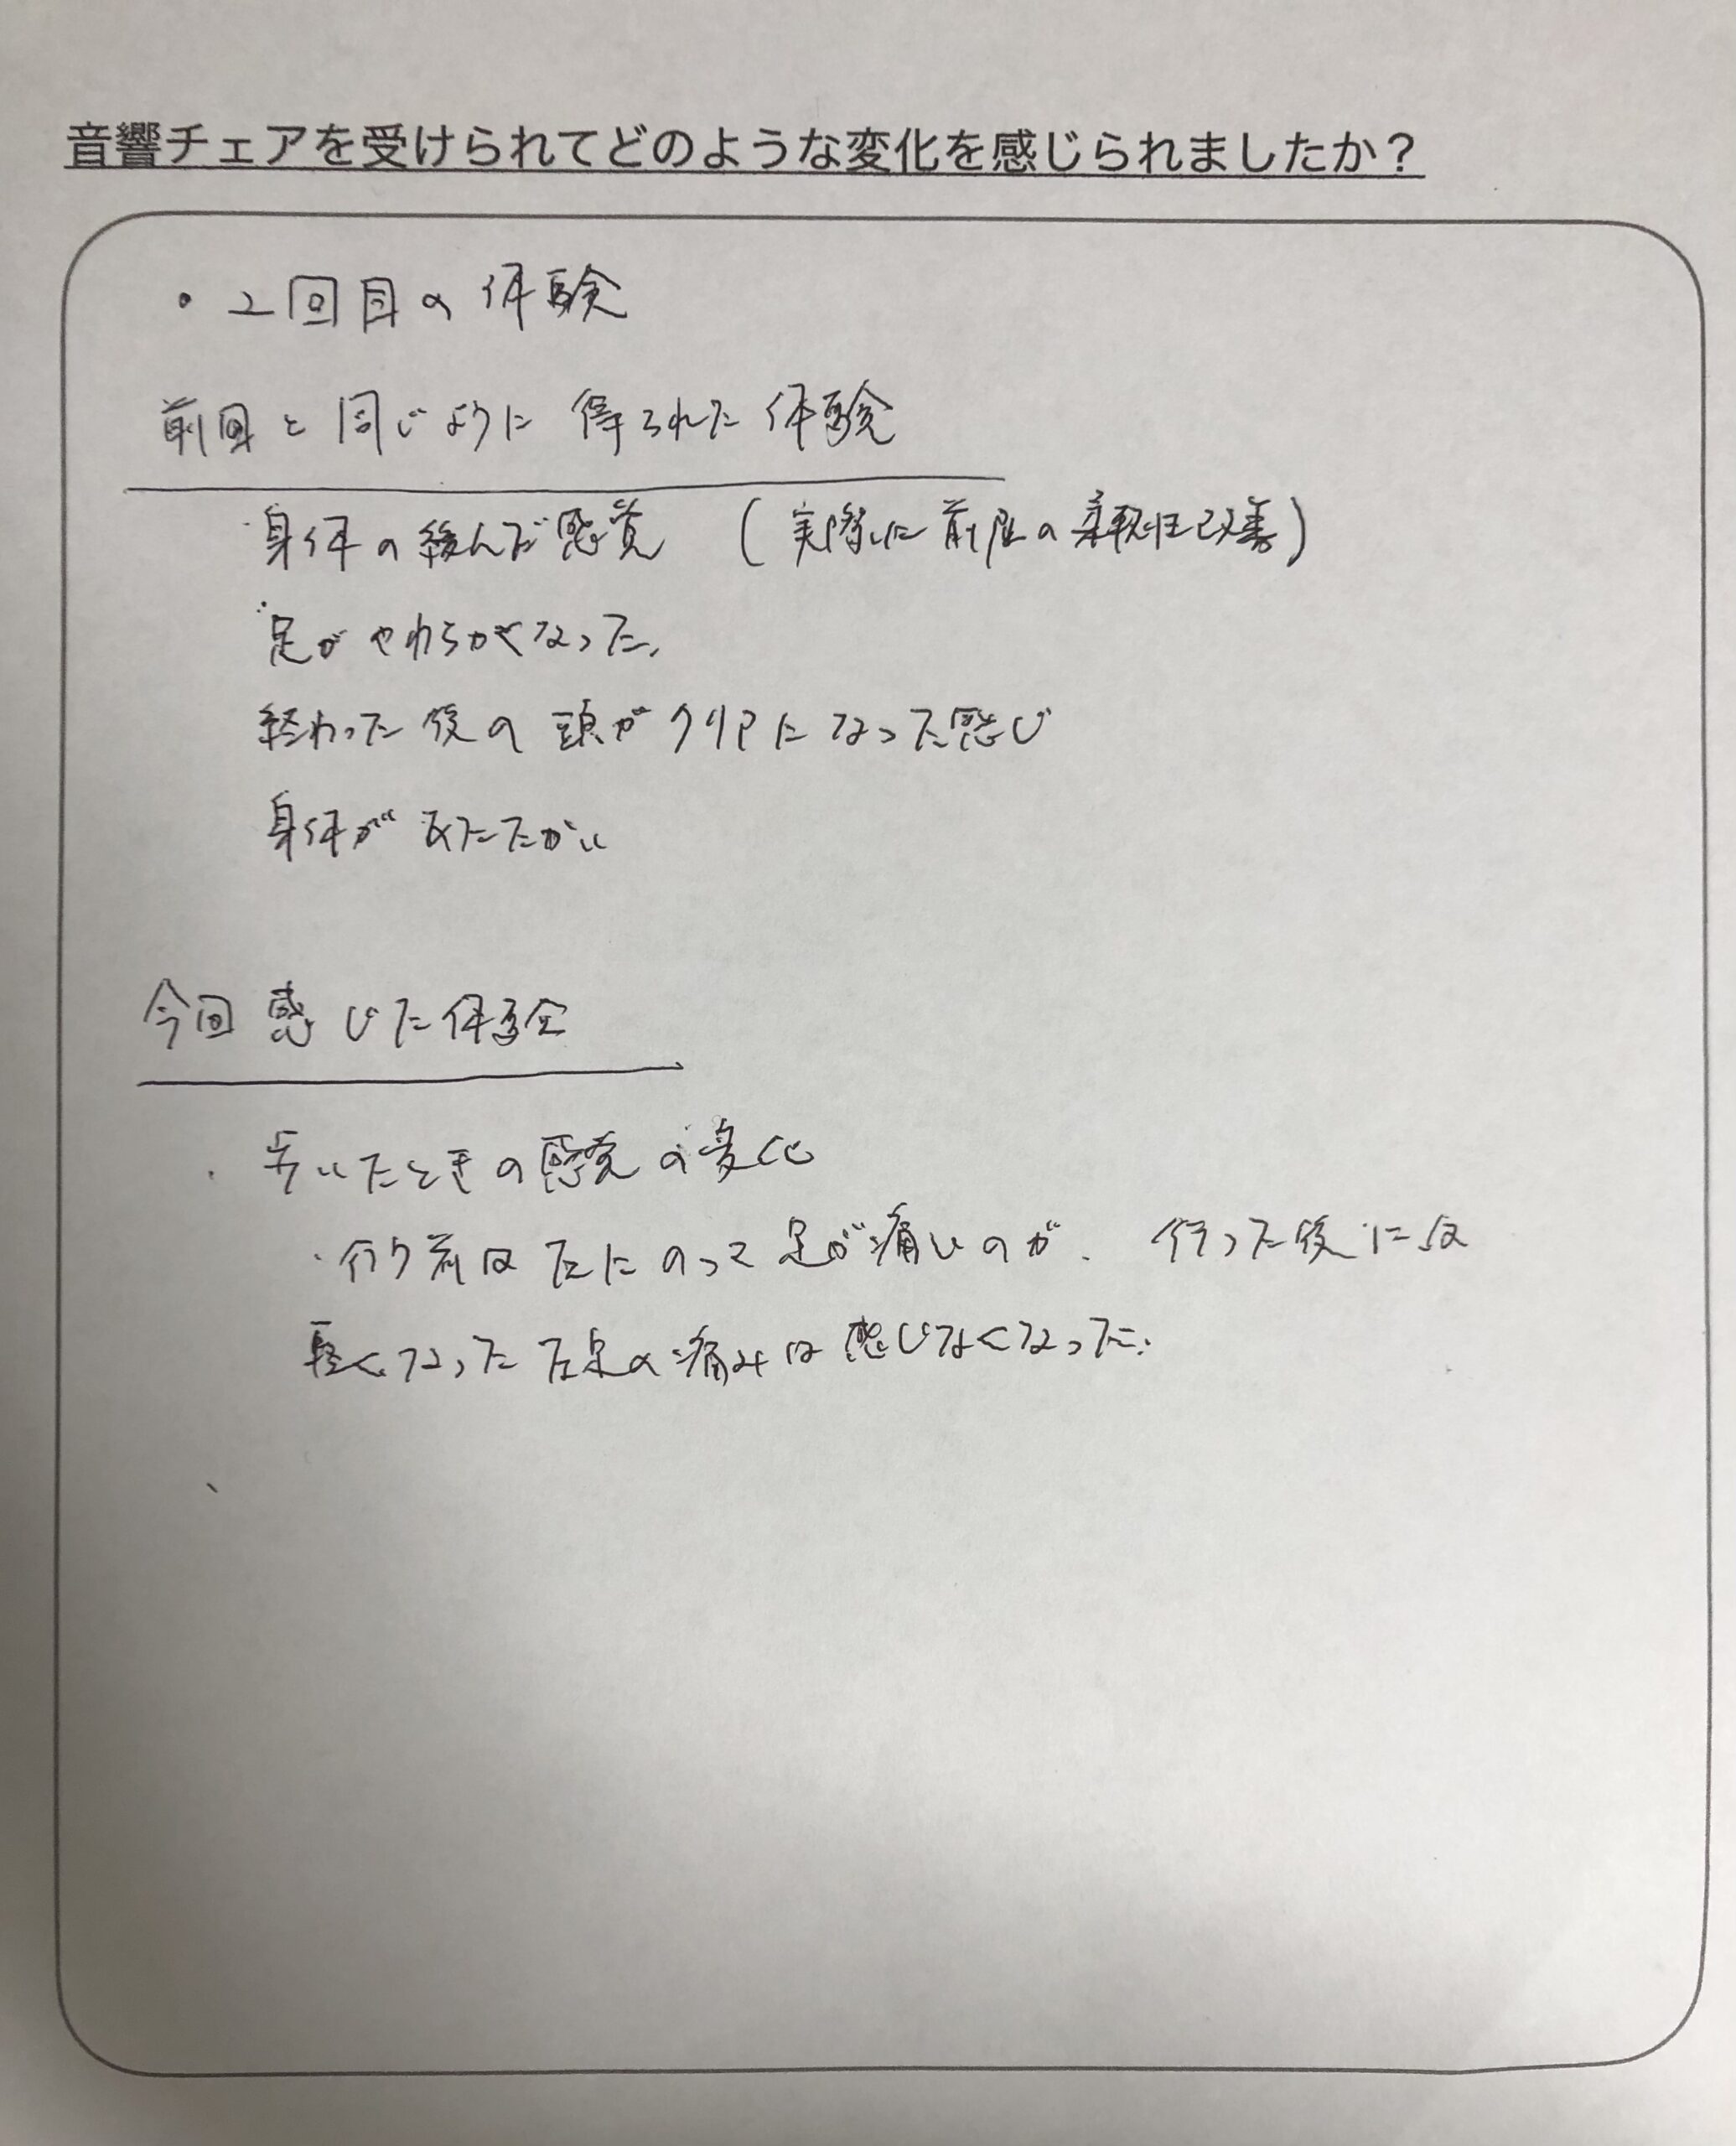 音響チェアを受けられてどのような変化を感じられましたか？
・2回目の体験
前回と同じように得られた体験
身体の緩んだ感覚 (実際に前屈の柔軟性改善)
足がやわらかくなった。
終わった後の頭がクリアになった感じ
身体があたたかい
今回感じた体験
・歩いたときの感覚の変化
・行う前は左にのって足が痛いのが、行った後には
軽くなった左足の痛みは感じなくなった。